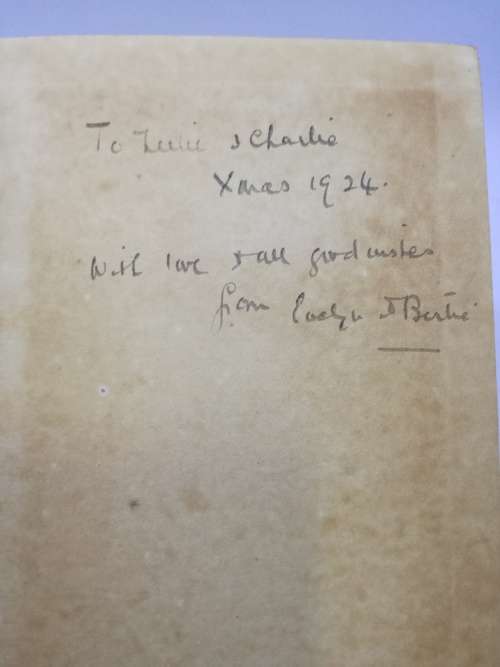 To & Charlie
Xmas 1924.
With love & all good wishes
from Evelyn & Bertie